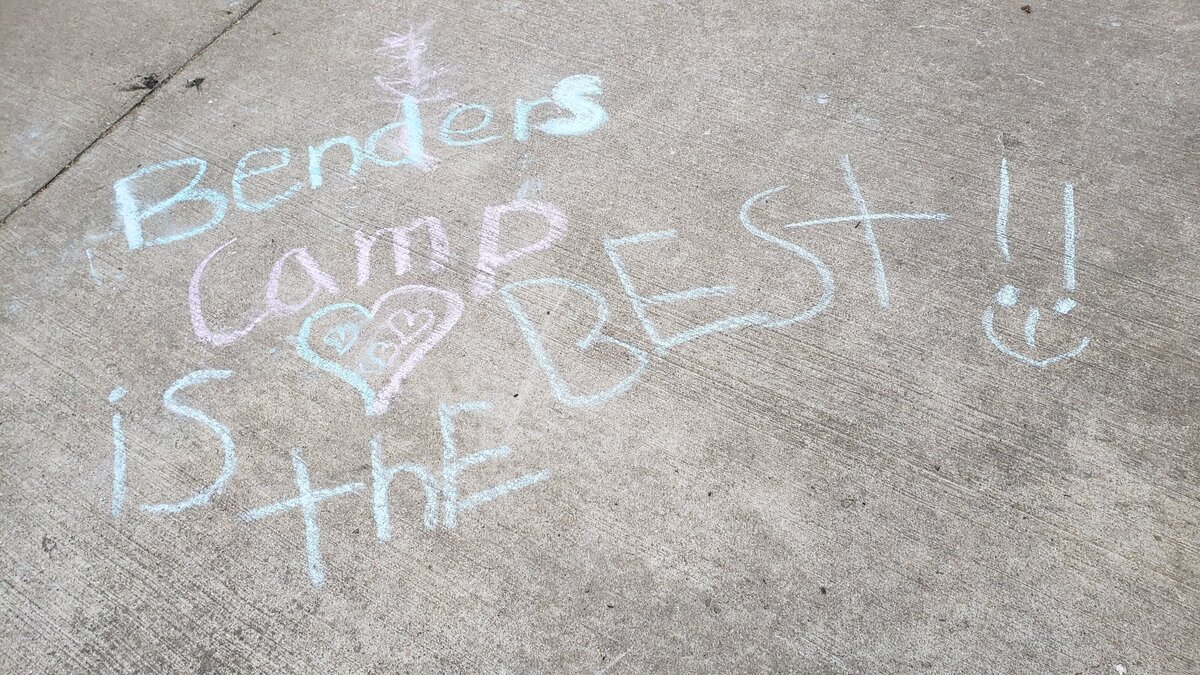 Benders
Camp
is thE BESt !!